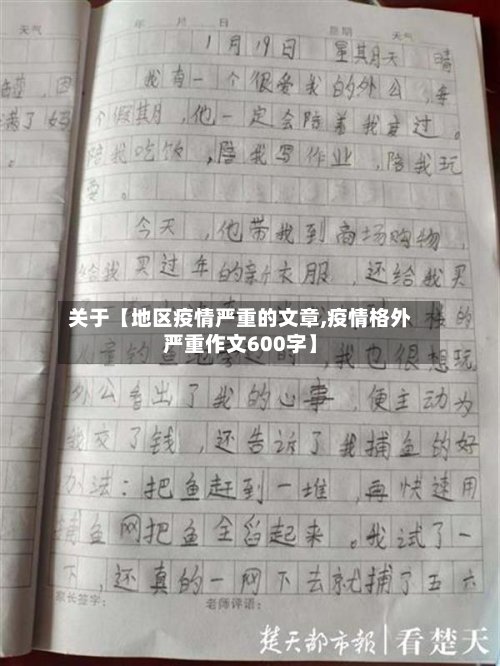 天气
年 月 日 星期 天气
1月19日 星期天 晴
我有一个很爱我的外公,每
个假期,他一定会陪着我度过。
陪我吃饭,陪我写作业,陪我玩
耍。
今天,他带我到商场购物,
给我买过年的新衣服,还给我买
关于【地区疫情严重的文章,疫情格外
严重作文600字】
样的
我也很想玩
外公看出了我的心事,便主动为
我交了钱,还告诉了我捕鱼的好
办法:把鱼赶到一堆,再快速用
捕鱼网把鱼全舀起来。我试了一
下,还真的一网下去就捕了五六
家长签字: 老师评语:
楚天都市报 看楚天